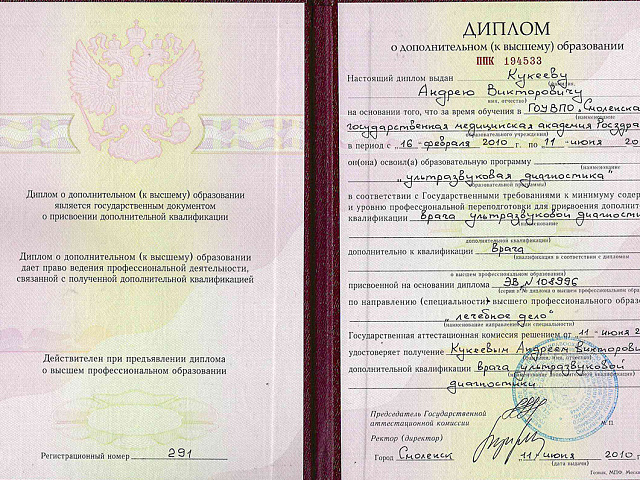 Диплом о дополнительном (к высшему) образовании
является государственным документом
о присвоении дополнительной квалификации
Диплом о дополнительном (к высшему) образовании
дает право ведения профессиональной деятельности,
связанной с полученной дополнительной квалификацией
Действителен при предъявлении диплома
о высшем профессиональном образовании
Регистрационный номер 291
ДИПЛОМ
о дополнительном (к высшему) образовании
ППК 194533
Настоящий диплом выдан Кукееву
Андрею Викторовичу
имя, отчество)
на основании того, что за время обучения в ГОУВПО „Смоленска
(наименование
государственная медицинская академия Росздра
образовательного учреждения)
в период с 16 февраля 2010 г. по 11 июня 20
он(она) освоил(а) образовательную программу
(наименование
„ультразвуковая диагностика“
образовательной программы)
в соответствии с Государственными требованиями к минимуму содер
и уровню профессиональной переподготовки для присвоения дополнит
квалификации врача ультразвуковой диагност
(наименование
дополнительной квалификации)
дополнительно к квалификации врача
(квалификация в соответствии с дипломом
о высшем профессиональном образовании)
присвоенной на основании диплома ЭВ № 108996
(серия и № диплома о высшем профессиональном обра
по направлению (специальности) высшего профессионального образо
„лечебное дело“
(наименование направления специальности)
Государственная аттестационная комиссия решением от 11 июня 2
удостоверяет получение Кукеевым Андреем Викторови
(фамилия, имя, отчество)
дополнительной квалификации врача ультразвуковой
(наименование дополнительной квалификации)
диагностики
Председатель Государственной
аттестационной комиссии
М.П.
Ректор (директор)
Город Смоленск 11 июня 2010 г
(дата выдачи)
Гознак, МПФ, Москва